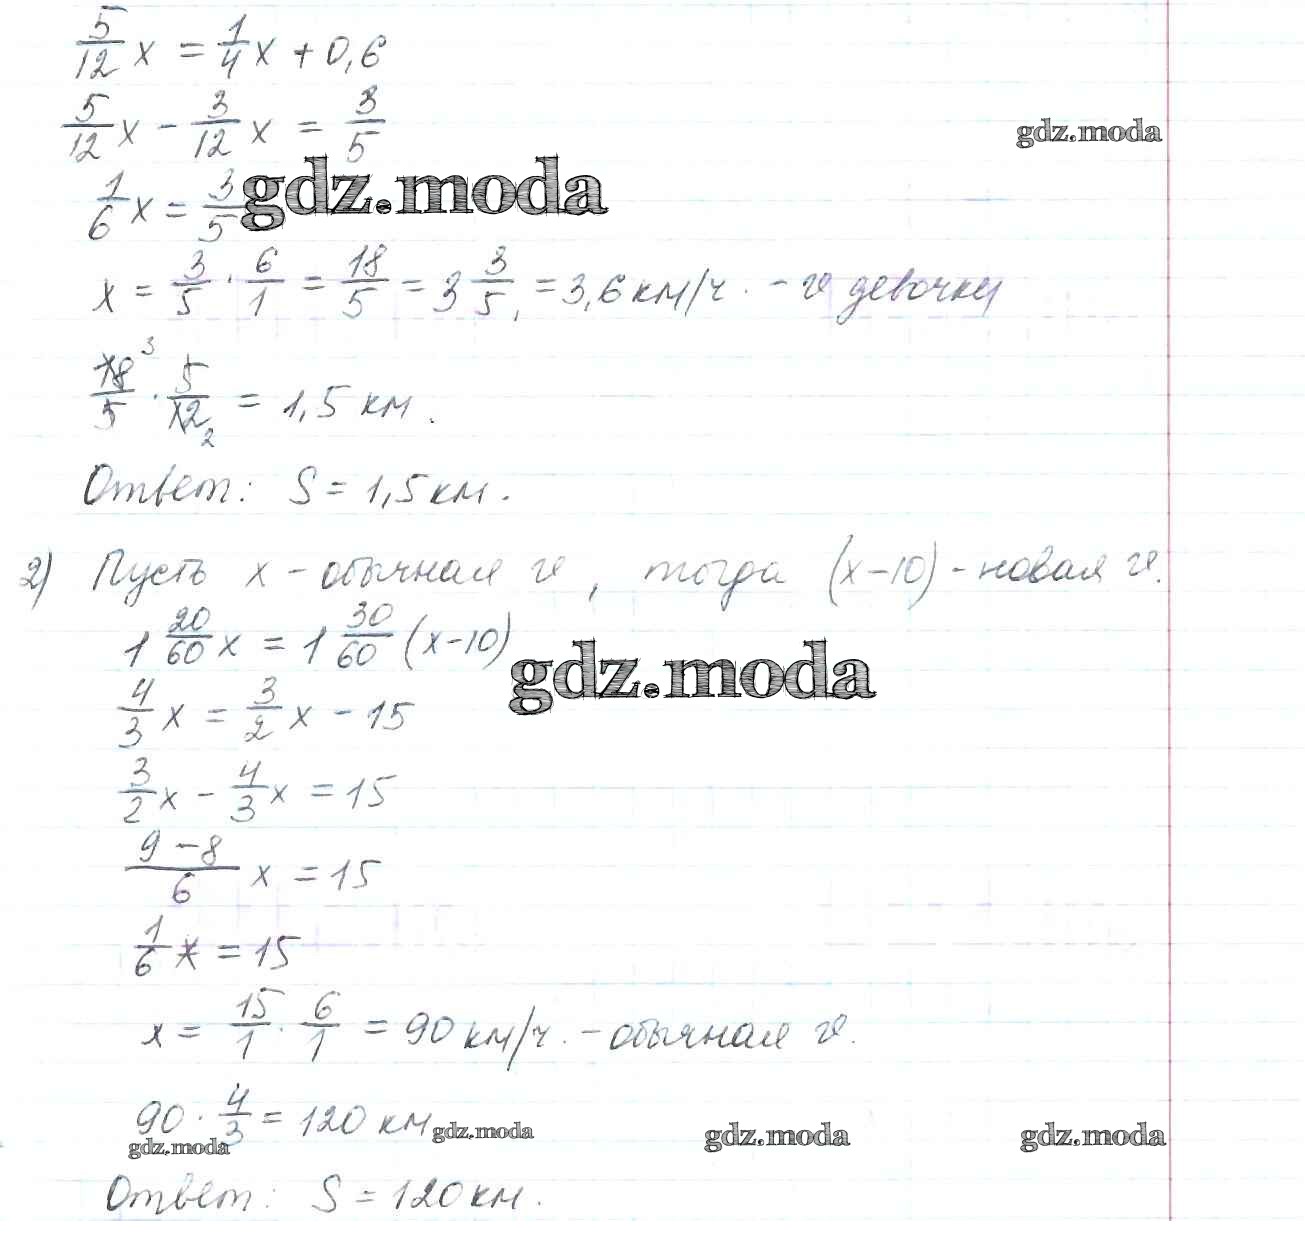 5/12 x = 1/4 x + 0,6
5/12 x - 3/12 x = 3/5
gdz.moda
1/6 x = 3/5
gdz.moda
x = 3/5 · 6/1 = 18/5 = 3 3/5 = 3,6 км/ч. - v девочки
18/5 · 5/12 = 1,5 км.
3
2
Ответ: S = 1,5 км.
2) Пусть x - обычная v, тогда (x-10) - новая v.
1 20/60 x = 1 30/60 (x-10)
gdz.moda
4/3 x = 3/2 x - 15
3/2 x - 4/3 x = 15
9-8/6 x = 15
1/6 x = 15
x = 15/1 · 6/1 = 90 км/ч. - обычная v.
90 · 4/3 = 120 км
gdz.moda gdz.moda gdz.moda gdz.moda
Ответ: S = 120 км.